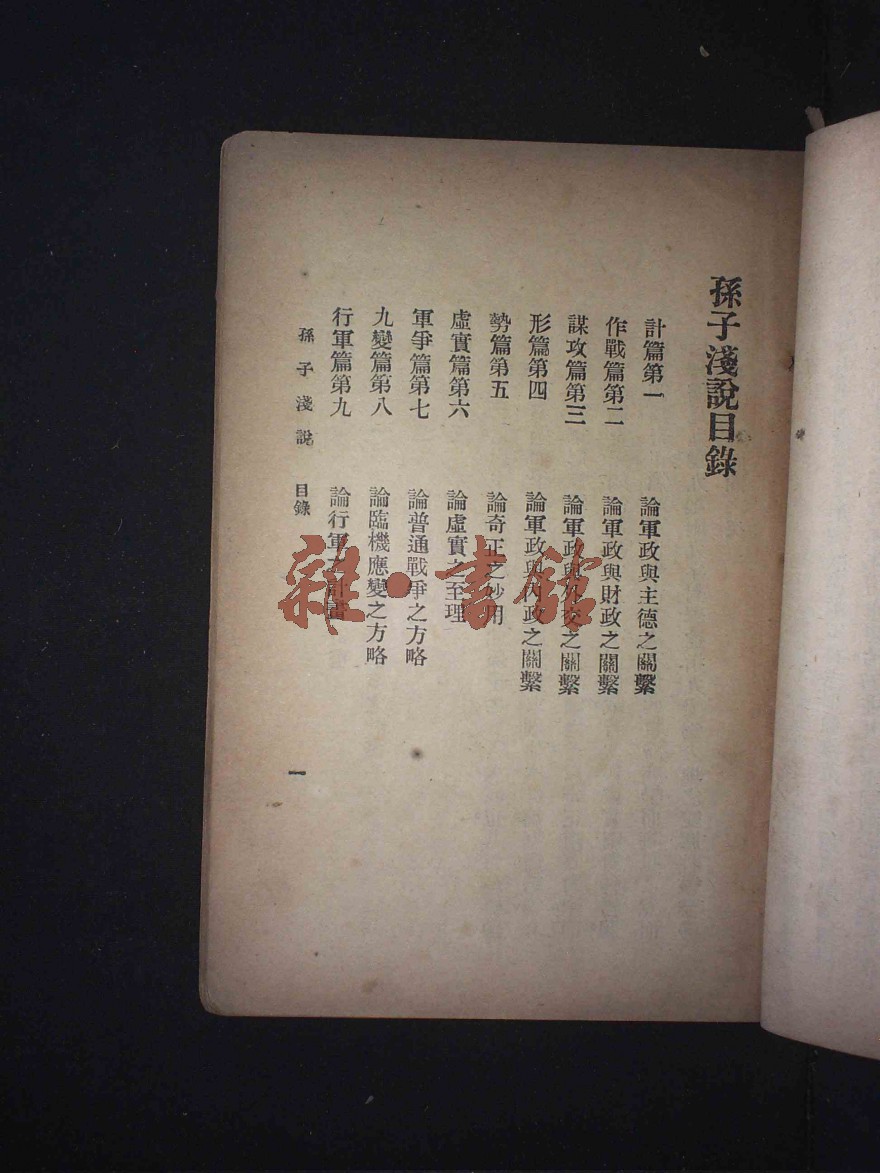 孫子淺說目錄
計篇第一 論軍政與主德之關繫
作戰篇第二 論軍政與財政之關繫
謀攻篇第三 論軍政與外交之關繫
形篇第四 論軍政與內政之關繫
勢篇第五 論奇正之妙用
虛實篇第六 論虛實之至理
軍爭篇第七 論普通戰爭之方略
九變篇第八 論臨機應變之方略
行軍篇第九 論行軍之計畫
孫子淺說 目錄 一
雜·書館